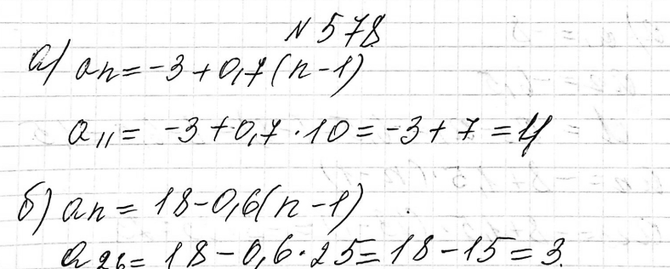 № 578
а) an = -3 + 0,7 (n - 1)
a11 = -3 + 0,7 · 10 = -3 + 7 = 4
б) an = 18 - 0,6 (n - 1)
a26 = 18 - 0,6 · 25 = 18 - 15 = 3.